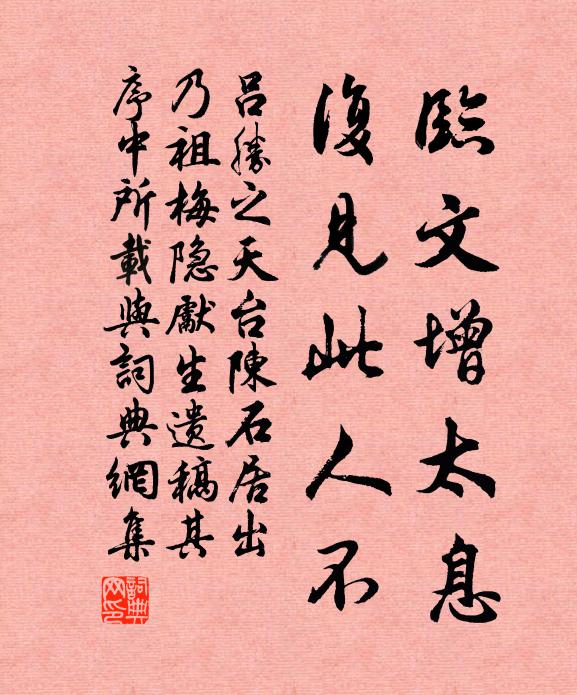 臨文增太息
復見此人不
呂勝之天台陳石居出
乃祖梅隐獻生遗稿其
序中所載與詞典網集
詞典
网印